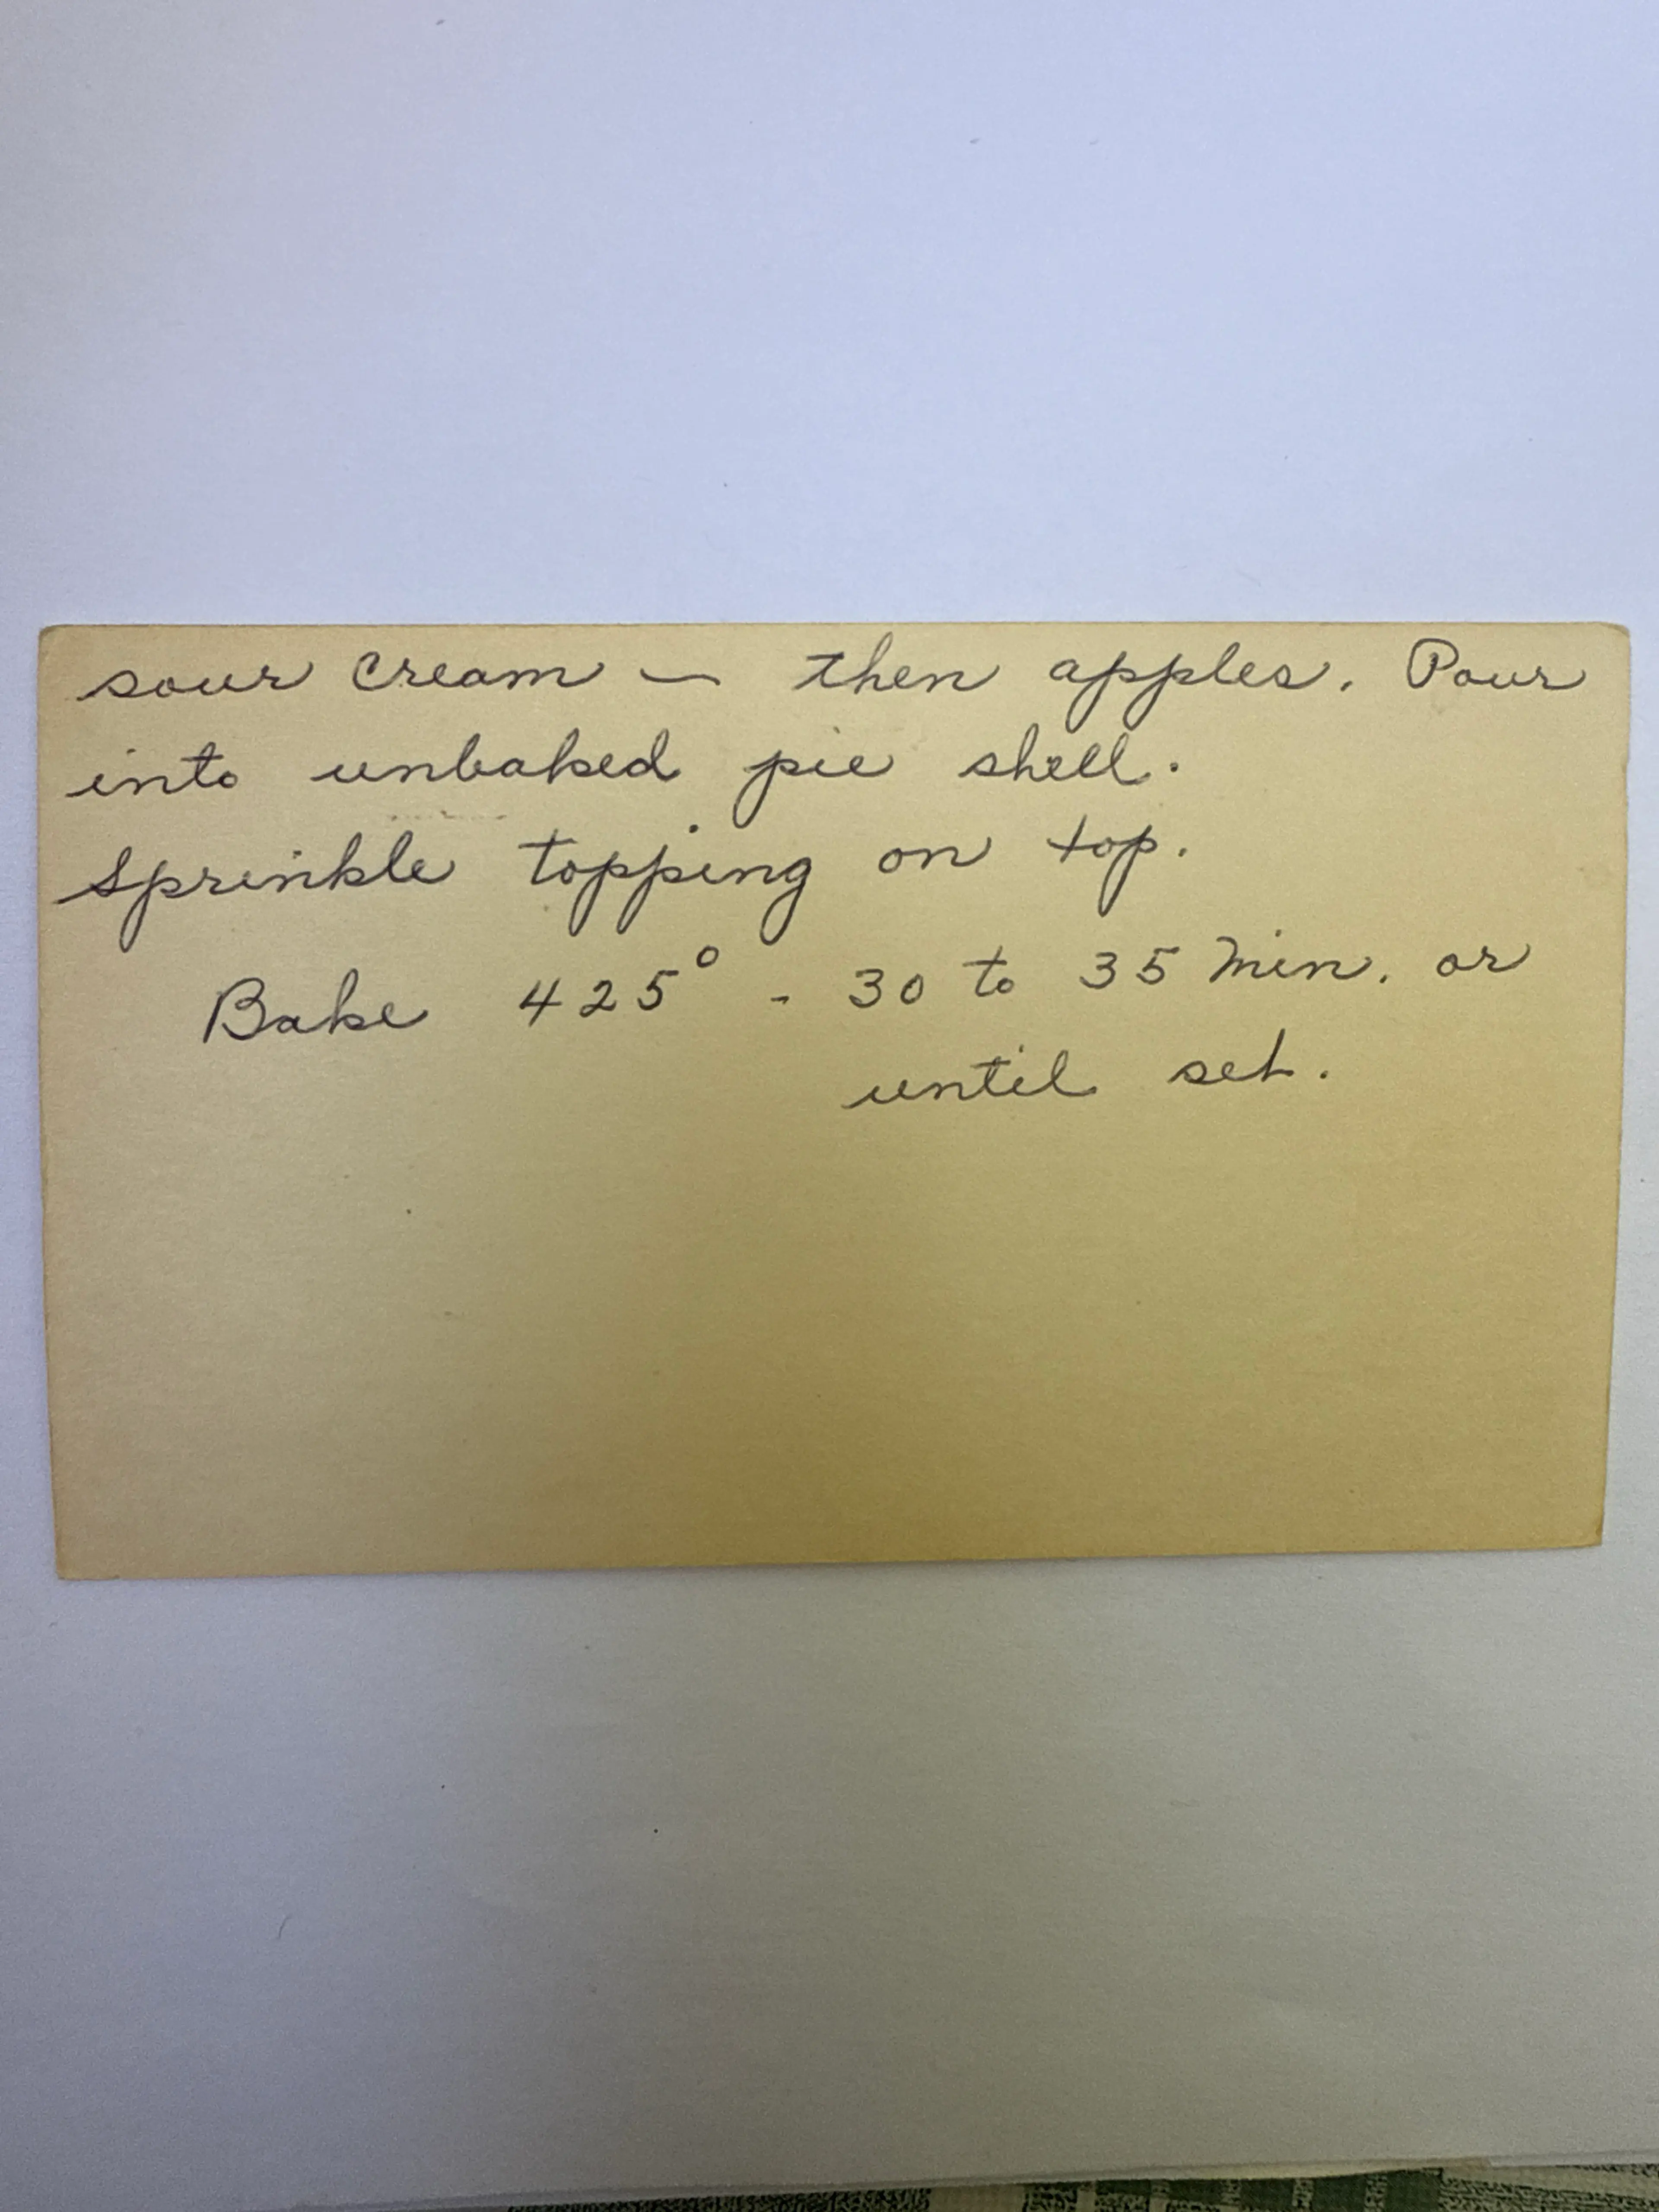 sour cream — then apples. Pour
into unbaked pie shell.
Sprinkle topping on top.
Bake 425° - 30 to 35 Min. or
until set.